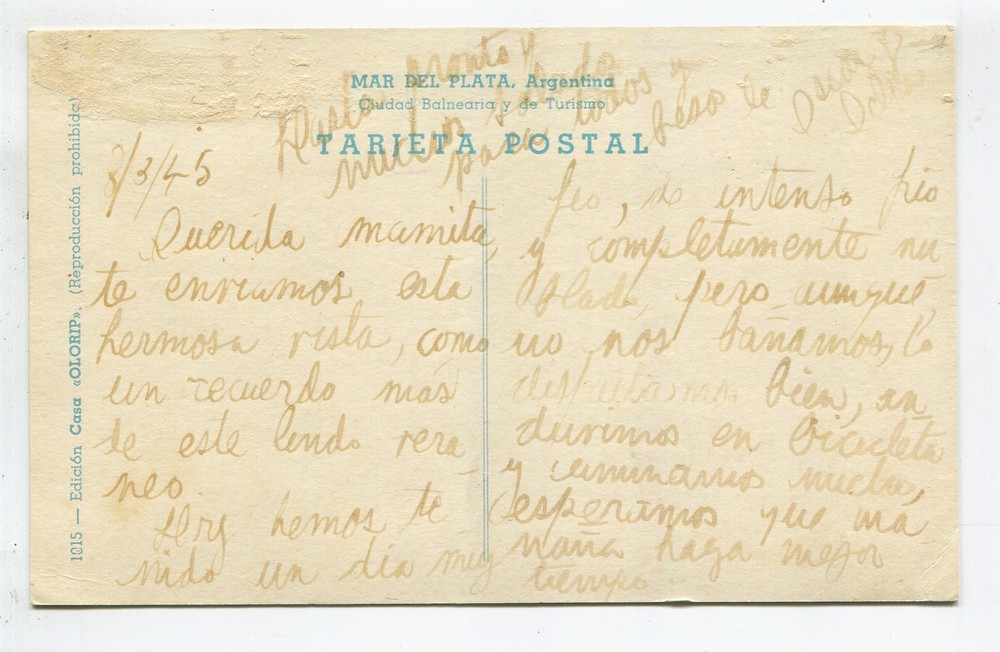 MAR DEL PLATA, Argentina
Ciudad Balnearia y de Turismo
TARJETA POSTAL
1015 — Edición Casa «OLORIP». (Reproducción prohibida)
/3/45
Querida mamita,
te enviamos esta
hermosa vista, como
un recuerdo mas
de este lindo vera
neo.
Hoy hemos te
nido un día muy
feo, de intenso frio
y completamente nu
blado, pero aunque
no nos bañamos, lo
disfrutamos bien, an
duvimos en bicicleta
y caminamos mucho,
esperamos que ma
ñana haga mejor
tiempo
Hasta pronto y
muchos saludos
para todos y
beso de Oscar y